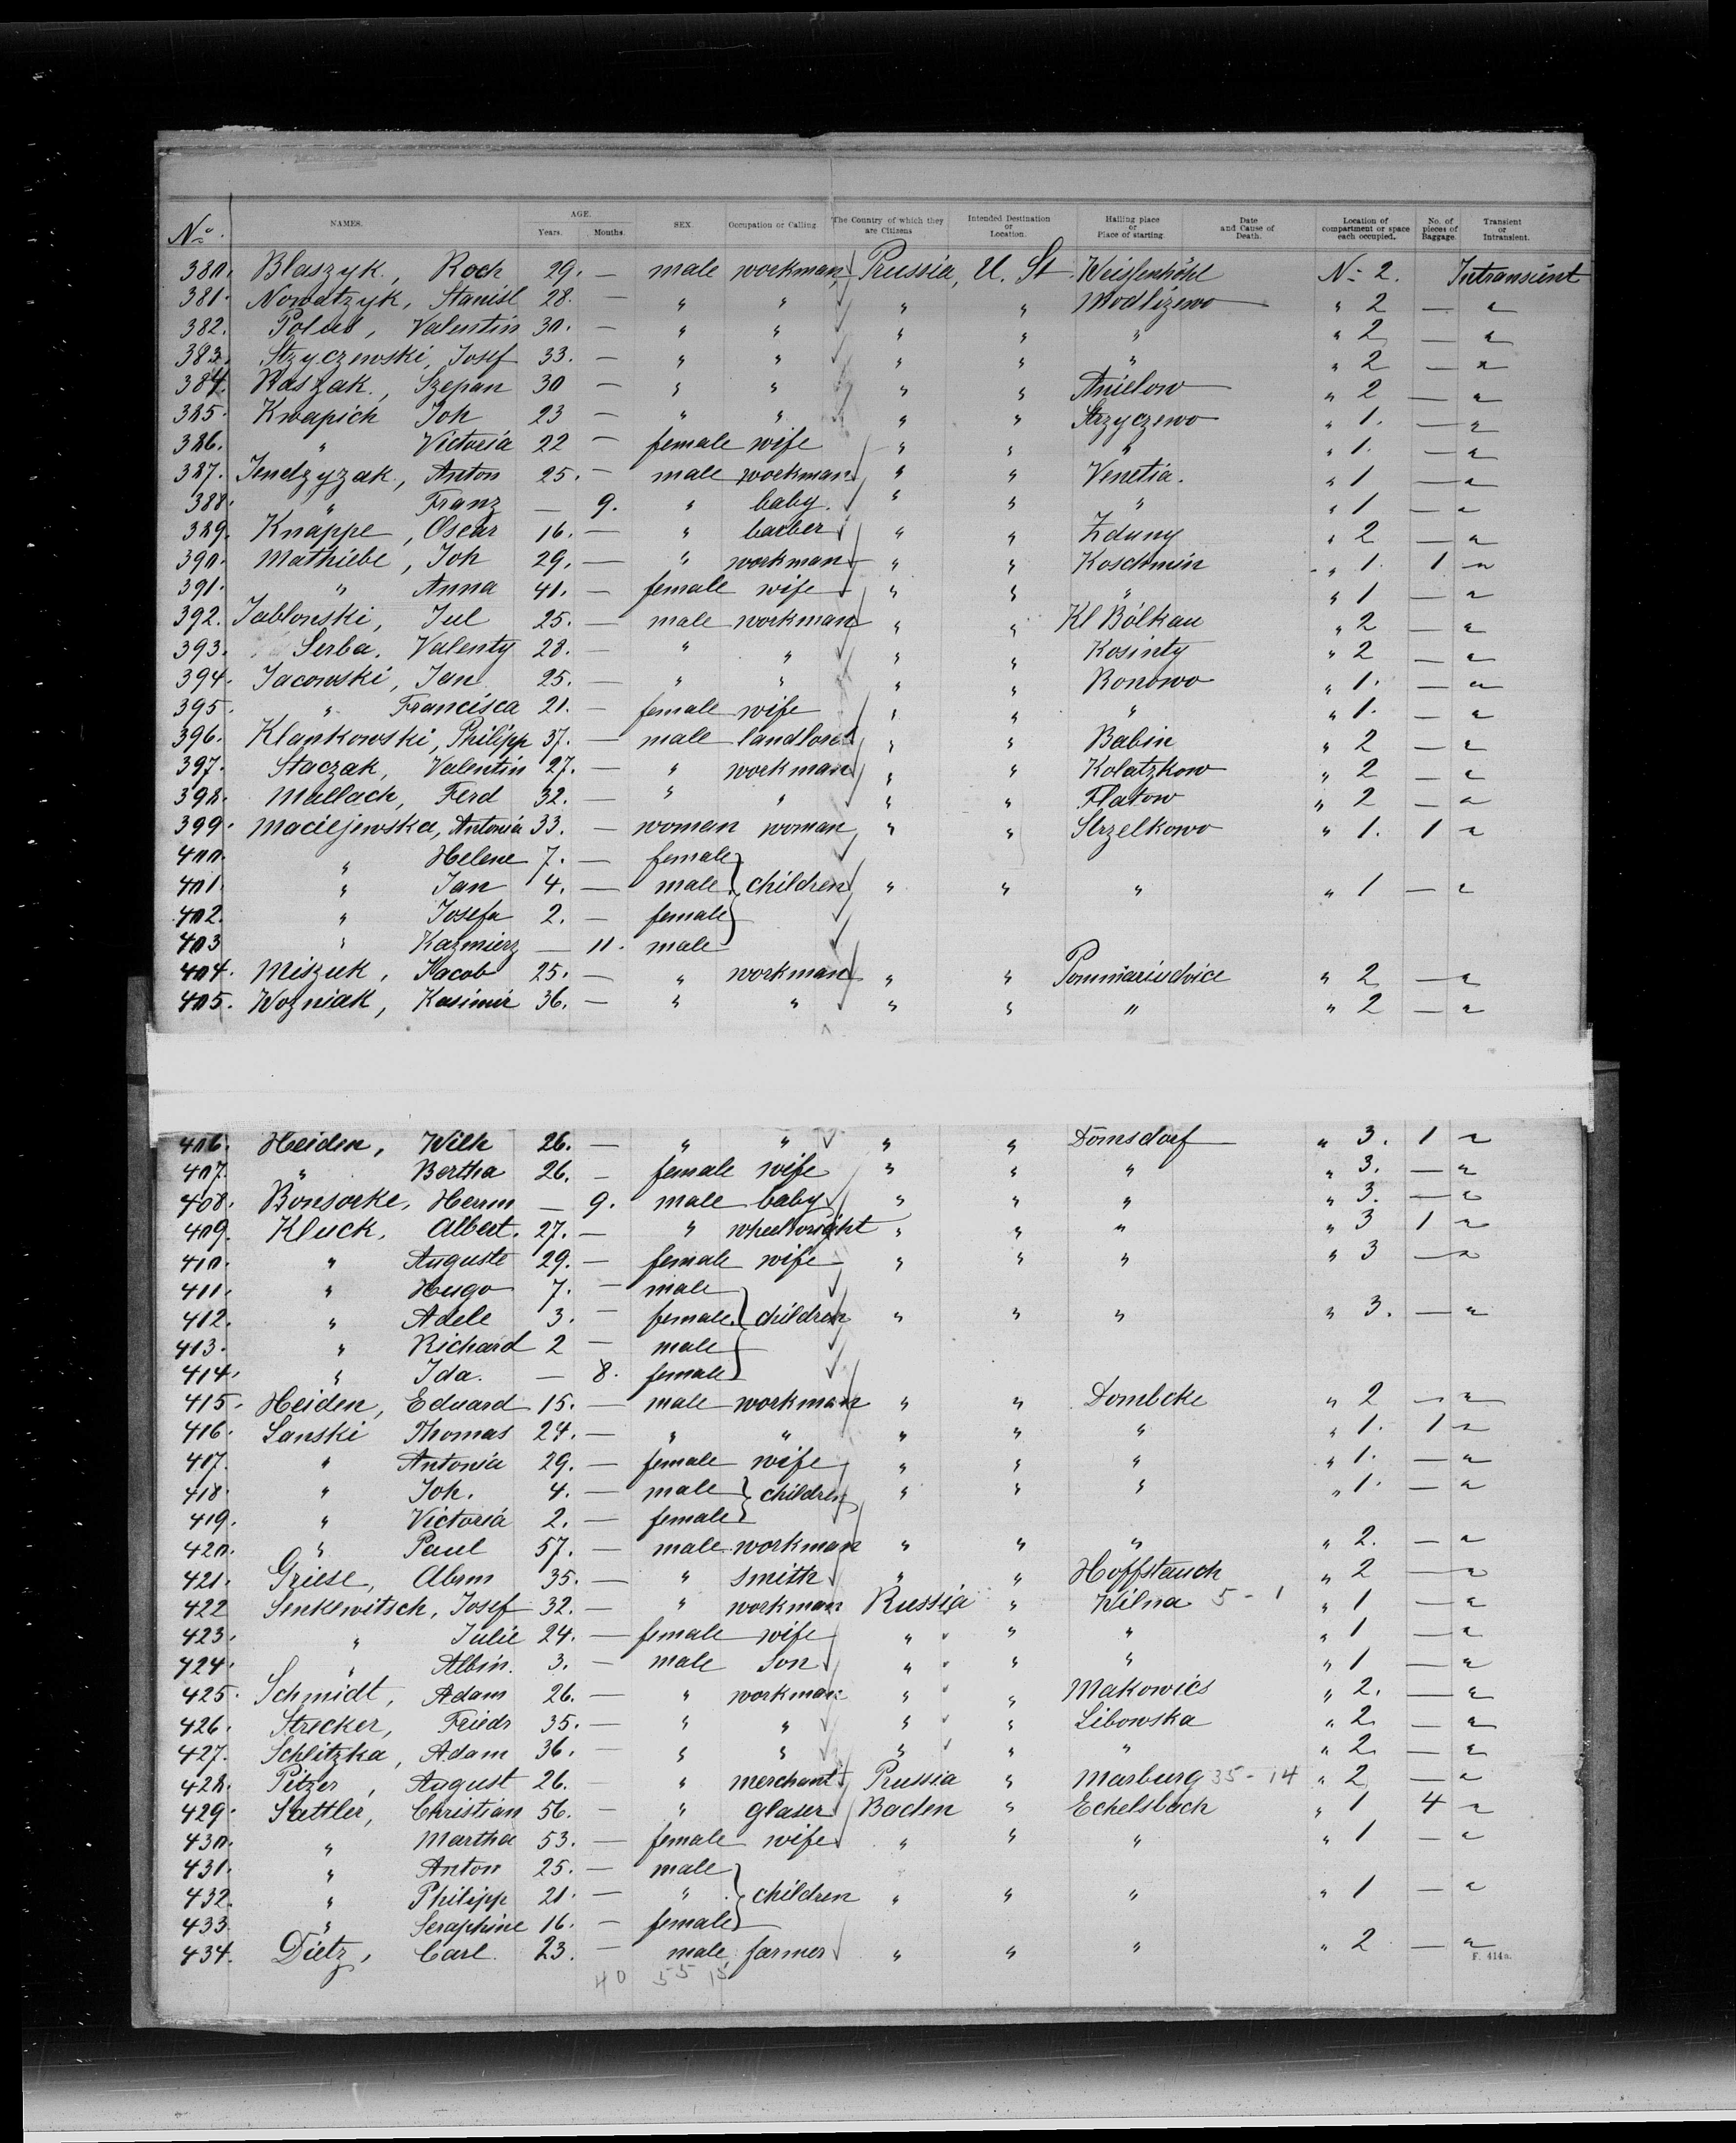 No. NAMES. AGE. Years. Months. SEX. Occupation or Calling The Country of which they are Citizens Intended Destination or Location. Hailing place or Place of starting. Date and Cause of Death. Location of compartment or space each occupied. No. of pieces of Baggage. Transient or Intransient.
380. Blaszyk, Roch 29. — male workman, Prussia, U. St. Weissenhöhl No 2. Intransient
381. Nowatzyk, Stanisl 28. — " " " " Modlizewo " 2 — "
382. Polus, Valentin 30. — " " " " " " 2 — "
383. Stzyczewski, Josef 33. — " " " " " " 2 — "
384. Raszak, Szepan 30 — " " " " Anielow " 2 — "
385. Kwapich Joh 23 — " " " " Strzyczewo " 1. — "
386. " Victoria 22 — female wife " " " " 1. — "
387. Jendzyzak, Anton 25. — male workman " " Venetia. " 1 — "
388. " Franz — 9. " baby " " " " 1 — "
389. Knappe, Oscar 16. — " barber " " Zduny " 2 — "
390. Mathiebe, Joh 29. — " workman " " Koschmin " 1. 1 "
391. " Anna 41. — female wife " " " " 1 — "
392. Jablonski, Jul 25. — male workman " " Kl Bölkau " 2 — "
393. Serba, Valenty 28. — " " " " Kosinty " 2 — "
394. Jacowski, Jan 25. — " " " " Ronowo " 1. — "
395. " Francisca 21. — female wife " " " " 1. — "
396. Klankowski, Philipp 37. — male landlord " " Babin " 2 — "
397. Staczak, Valentin 27. — " workman " " Kolatzkow " 2 — "
398. Mallach, Ferd 32. — " " " " Flatow " 2 — "
399. Maciejewska, Antonia 33. — woman woman " " Strzelkowo " 1. 1 "
400. " Helene 7. — female
401 " Jan 4. — male children " " " " 1 — "
402. " Josefa 2. — female
403 " Kazmierz — 11. male
404. Miszuk, Jacob 25. — " workman " " " 2 — "
405. Wozniak, Kasimir 36. — " " " " " " 2 — "
406. Heiden, Wilh 26. — " " " " Domsdorf " 3. 1 "
407. " Bertha 26. — female wife " " " " 3. — "
408. Bonsorke, Herm — 9. male baby " " " " 3. — "
409. Kluck, Albert. 27. — " wheelwright " " " " 3 1 "
410. " Auguste 29. — female wife " " " " 3 — "
411. " Hugo 7. — male
412. " Adele 3. — female children " " " " 3. — "
413. " Richard 2 — male
414. " Ida. — 8. female
415. Heiden, Eduard 15. — male workman " " Dombcke " 2 — "
416. Lanski Thomas 24. — " " " " " " 1. 1 "
417. " Antonia 29. — female wife " " " " 1. — "
418. " Joh. 4. — male children " " " " 1. — "
419. " Victoria 2. — female
420. " Paul 57. — male workman " " " " 2. — "
421. Griese, Abrm 35. — " smith " " Hoffstauch " 2 — "
422 Sinkewitsch, Josef 32. — " workman Russia " Wilna 5 - 1 " 1 — "
423. " Julie 24. — female wife " " " " 1 — "
424. " Albin. 3. — male son " " " " 1 — "
425. Schmidt, Adam 26. — " workman " " Makowics " 2. — "
426. Strecker, Friedr 35. — " " " " Libowska " 2 — "
427. Schlitzka, Adam 36. — " " " " " " 2 — "
428. Pitzer, August 26. — " merchant Prussia " Marburg 35 - 14 " 2 — "
429. Sattler, Christian 56. — " glaser Baden " Echelsbach " 1 4 "
430. " Martha 53. — female wife " " " " 1 — "
431. " Anton 25. — male
432. " Philipp 21. — " children " " " " 1 — "
433. " Seraphine 16. — female
434. Dietz, Carl. 23. — male farmer " " " " 2 — "
F. 414a.
40 55 15